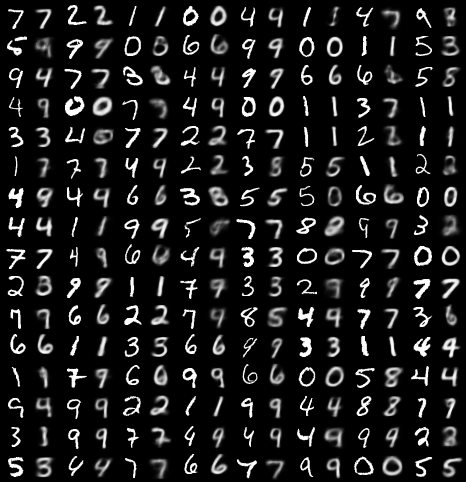 7 7 2 2 1 1 0 0 4 9 1 1 4 7 9 8
5 9 9 9 0 0 6 6 9 9 0 0 1 1 5 3
9 4 7 7 3 8 4 4 9 9 6 6 6 5 8
4 9 0 0 7 7 4 9 0 0 1 1 3 7 1 1
3 3 4 7 7 2 2 7 7 1 1 2 2 1 1
1 7 7 7 4 9 2 2 3 8 5 5 1 1 2 2
4 9 4 9 6 6 3 8 5 5 5 0 6 6 0 0
4 4 1 1 9 9 5 7 7 8 8 9 9 3 2
7 7 4 9 6 6 4 9 3 3 0 0 7 7 0 0
2 3 9 9 1 1 7 9 3 3 2 9 9 9 7 7
7 9 6 6 2 2 7 9 8 5 4 9 7 7 3 6
6 6 1 1 3 3 6 6 9 9 3 3 1 1 4 4
1 1 7 9 6 6 9 9 6 6 0 0 5 8 4 4
9 9 9 9 2 2 1 1 9 9 4 4 8 8 7 7
3 3 9 9 7 7 4 9 4 9 4 9 9 9 2 2
5 3 4 4 7 7 6 6 7 7 9 9 0 0 5 5